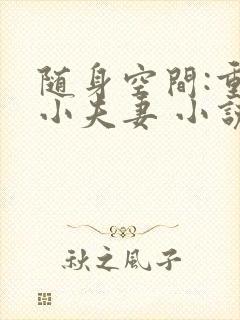 随身空間:重
小夫妻 小說
秋之風子